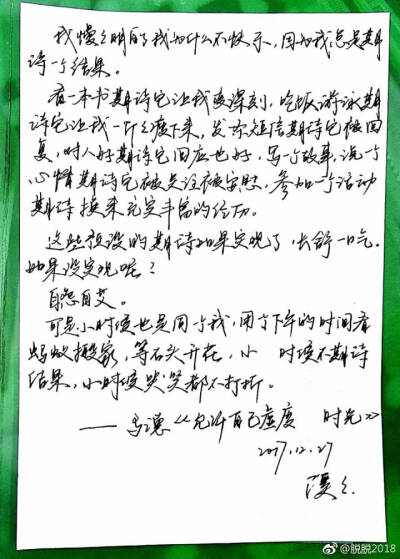 我慢慢明白了我为什么不快乐，因为我总是期
待一个结果。
看一本书期待它让我变深刻，吃饭游泳期
待它让我一斤斤瘦下来，发条短信期待它被回
复，对人好期待它回应也好，写个故事，说一个
心情期待它被关注被安慰，参加一个活动
期待换来充实丰富的经历。
这些预设的期待如果实现了，长舒一口气。
如果没实现呢？
自怨自艾。
可是小时候也是同一个我，用一下午的时间看
蚂蚁搬家，等石头开花，小 时候不期待
结果，小时候哭笑都不打折。
——马德《允许自己虚度 时光》
2017.12.27
@脱脱2018